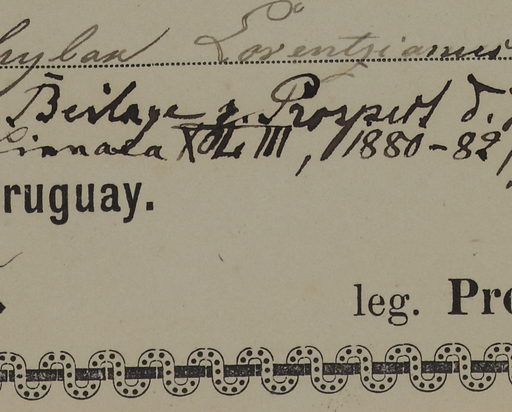 hylax Lorentzianus
Beilage z. Prospect d.
Linnaea XLIII, 1880-82
ruguay.
leg. Pro